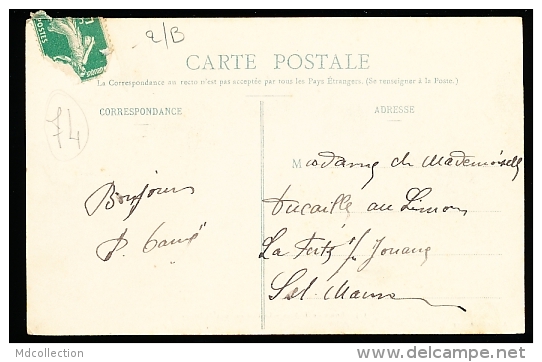 2/B
CARTE POSTALE
La Correspondance au recto n'est pas acceptée par tous les Pays Étrangers. (Se renseigner à la Poste.)
CORRESPONDANCE
ADRESSE
74
Madame & Mademoiselle
Ducaille au Limon
La Ferté s/s Jouarre
Set. Marne
Bonjour
Mdcollection
http://www.delcampe.net